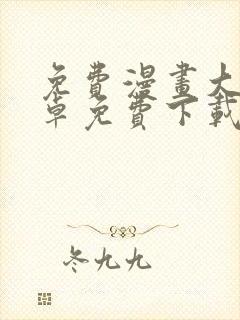 免費漫畫大
卓免費下載
冬九九